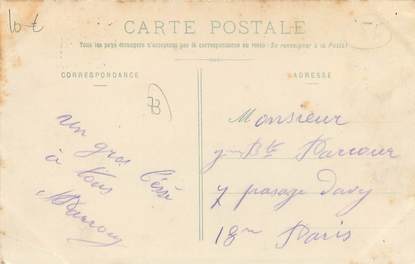 10 €
CARTE POSTALE
Tous les pays étrangers n'acceptent pas la correspondance au recto (Se renseigner à la Poste)
CORRESPONDANCE
ADRESSE
73
un gros
à tous
Monsieur
Bte
7 passage Davy
18me Paris